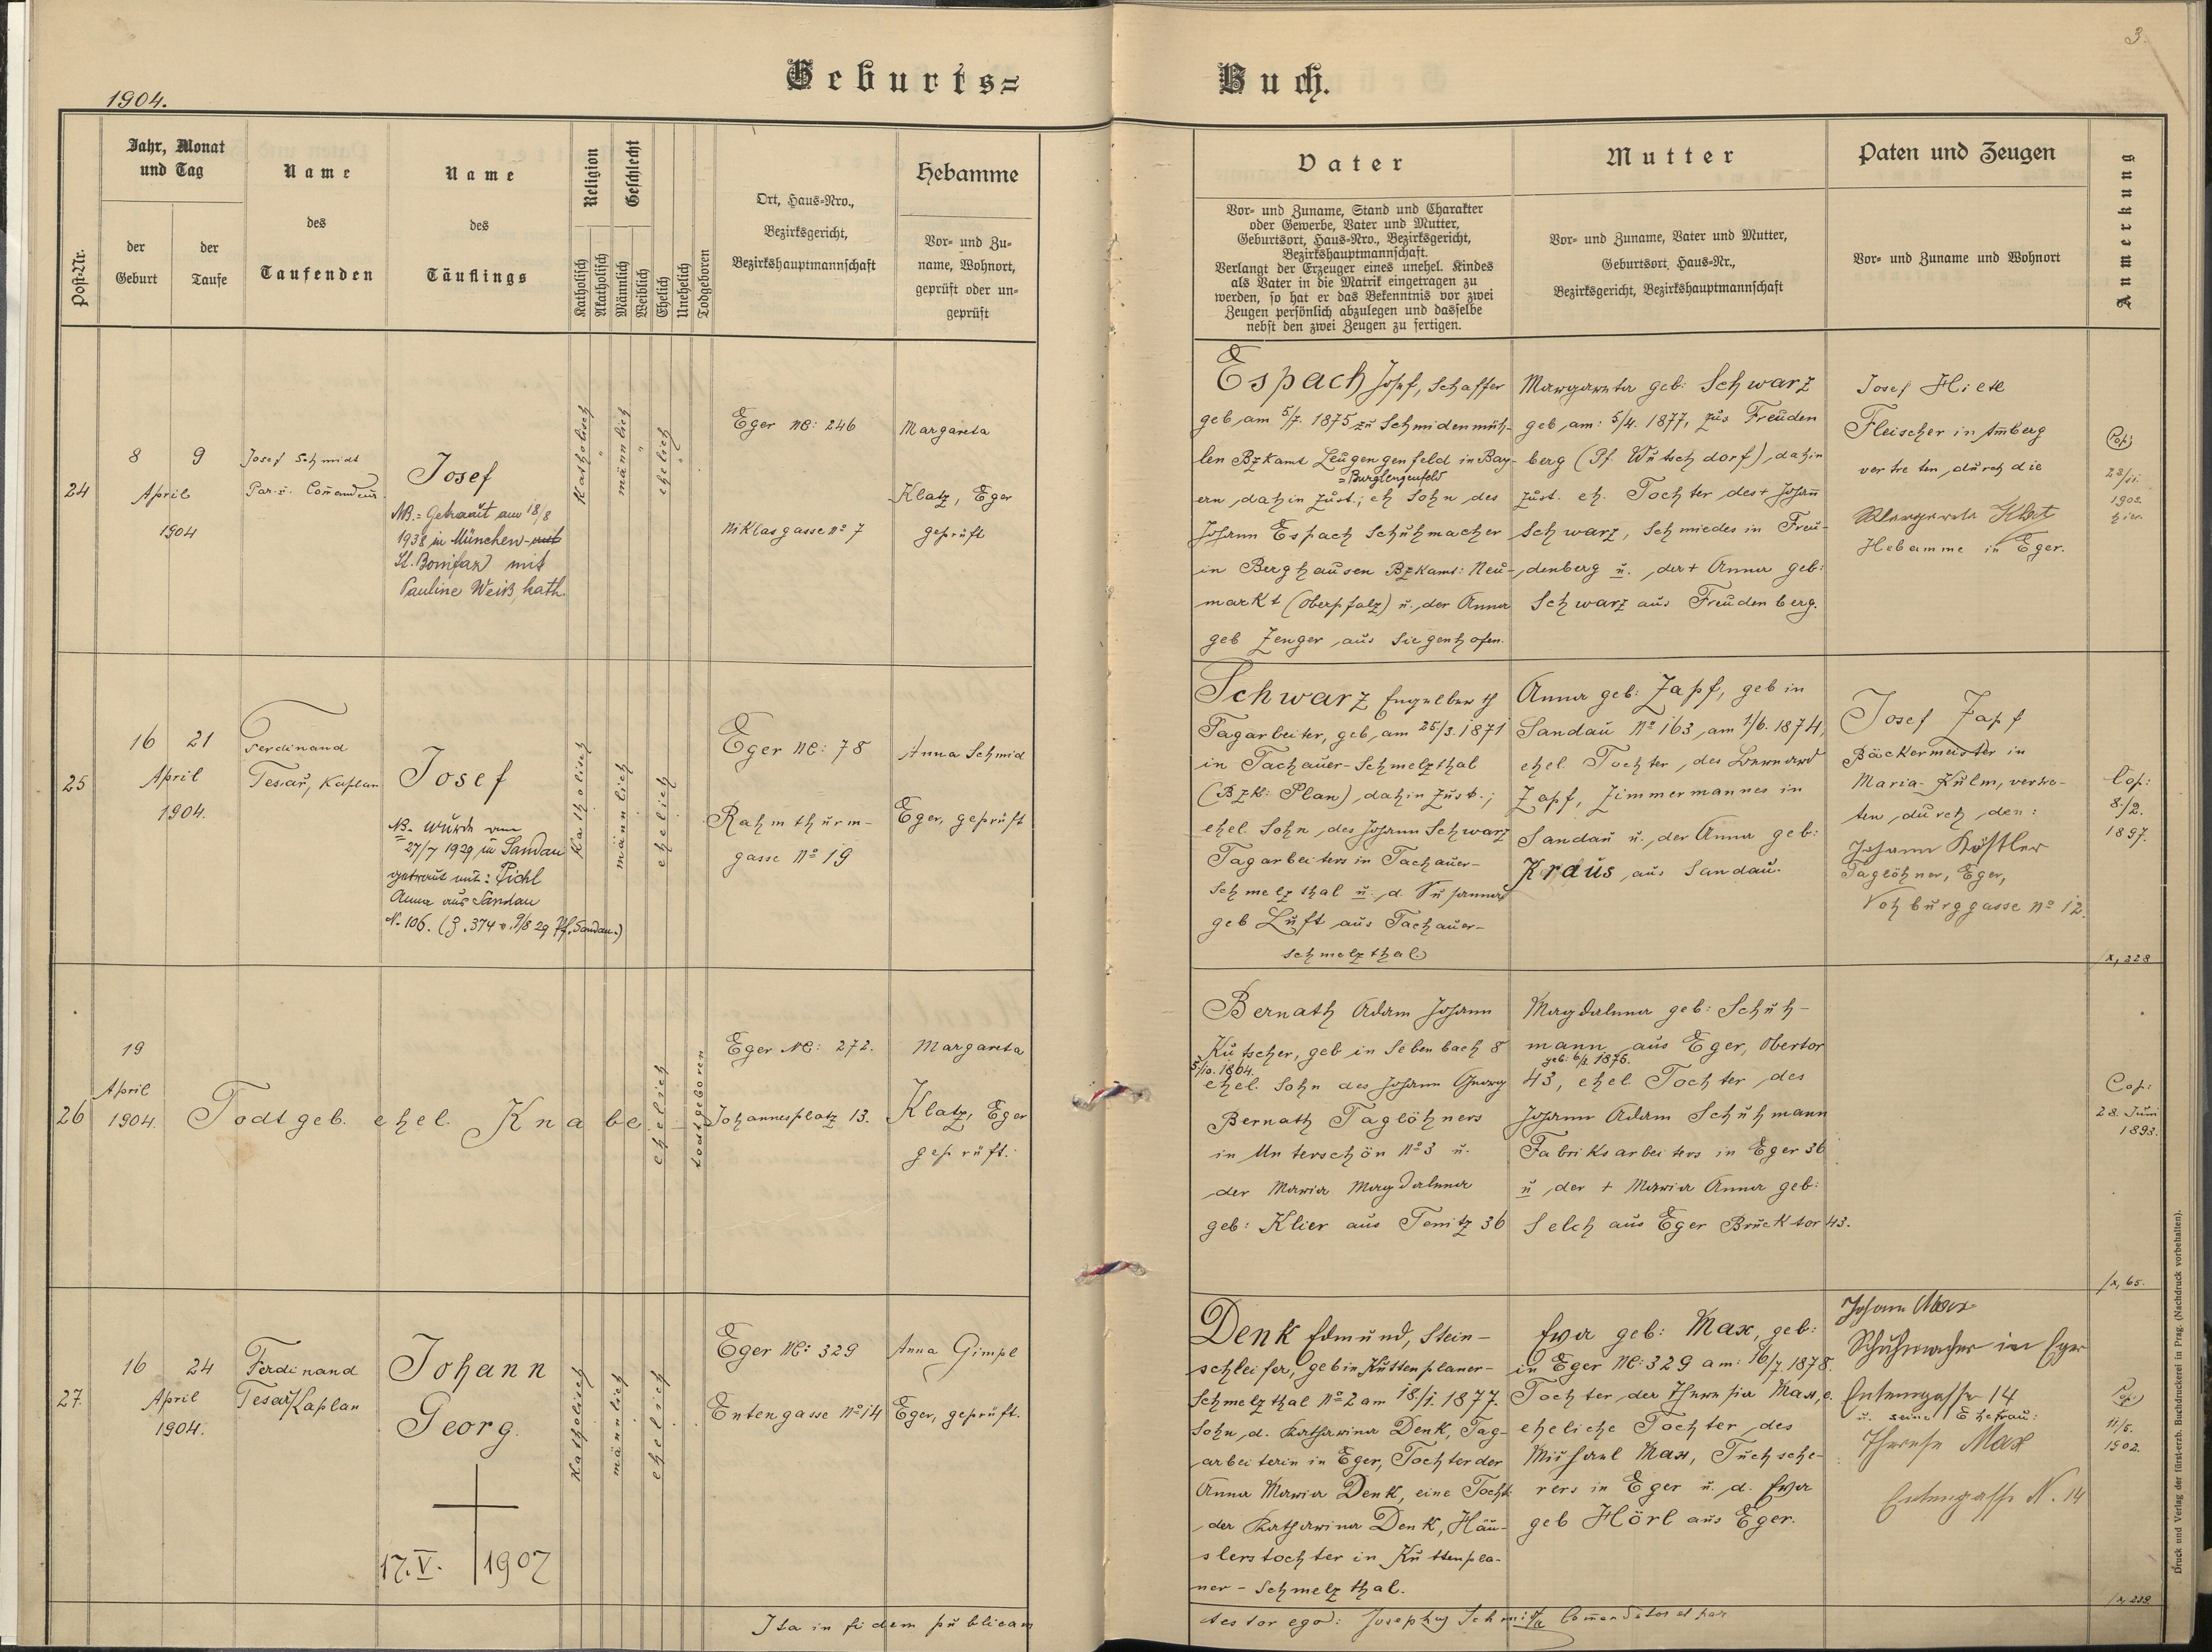 3.
Geburts=
Buch.
1904.
Post-Nr.
Jahr, Monat
und Tag
der
Geburt
der
Taufe
Name
des
Taufenden
Name
des
Täuflings
Religion
Katholisch
Akatholisch
Geschlecht
Männlich
Weiblich
Ehelich
Unehelich
Todgeboren
Ort, Haus-Nro.,
Bezirksgericht,
Bezirkshauptmannschaft
Hebamme
Vor- und Zu-
name, Wohnort,
geprüft oder un-
geprüft
Vater
Vor- und Zuname, Stand und Charakter
oder Gewerbe, Vater und Mutter,
Geburtsort, Haus-Nro., Bezirksgericht,
Bezirkshauptmannschaft.
Verlangt der Erzeuger eines unehel. Kindes
als Vater in die Matrik eingetragen zu
werden, so hat er das Bekenntnis vor zwei
Zeugen persönlich abzulegen und dasselbe
nebst den zwei Zeugen zu fertigen.
Mutter
Vor- und Zuname, Vater und Mutter,
Geburtsort, Haus-Nr.,
Bezirksgericht, Bezirkshauptmannschaft
Paten und Zeugen
Vor- und Zuname und Wohnort
Anmerkung
24
8 9
April
1904
Josef Schmidt
Par. u. Comandeur.
Josef
NB.= Getraut am 18/8
1938 in München
St. Bonifaz) mit
Pauline Weiß, kath.
Katholisch
männlich
ehelich
Eger NC: 246
Niklasgasse No 7
Margareta
Klatz, Eger
geprüft
Espach Josef, Schaffer
geb. am 5/7. 1875 zu Schmidenmüh-
len Bzkamt Leugengenfeld in Bay-
= Burglengenfeld
ern, dahin zust.; eh Sohn des
Johann Espach Schuhmacher
in Berghausen Bzkamt: Neu-
markt (Oberpfalz) u. der Anna
geb Zenger aus Siegenhofen.
Margareta geb: Schwarz
geb. am: 5/4. 1877, zus Freuden
berg (Pf. Wutschdorf), dahin
zust. eh. Tochter des + Johann
Schwarz, Schmiedes in Freu-
denberg u. der + Anna geb:
Schwarz aus Freudenberg.
Josef
Fleischer in Amberg
vertreten durch die
Margareta Klatz
Hebamme in Eger.
Cop:
1902.
hier.
25
16 21
April
1904.
Ferdinand
Tesař, Kaplan
Josef
NB. wurde am
27/7 1929 in Sandau
getraut mit: Pichl
Anna aus Sandau
N. 106. (Z. 374 v. 9/8 29 Pf. Sandau.)
Katholisch
männlich
ehelich
Eger NC: 78
Rahmthurm-
gasse No 19
Anna Schmid
Eger, geprüft
Schwarz Engelberth
Tagarbeiter, geb. am 25/3. 1871
in Tachauer-Schmelzthal
(Bzk: Plan), dahin zust.;
ehel. Sohn des Johann Schwarz
Tagarbeiters in Tachauer-
Schmelzthal u. d. Susanna
geb Luft aus Tachauer-
schmelzthal
Anna geb: Zapf, geb in
Sandau No 163, am 1/6. 1874,
ehel. Tochter des Bernard
Zapf, Zimmermannes in
Sandau u. der Anna geb:
Kraus, aus Sandau.
Josef Zapf
Bäckermeister in
Maria-Kulm, vertre-
ten durch den:
Johann Köstler
Taglöhner, Eger,
Vohburggasse No 12.
Cop:
8/2.
1897.
/X, 228
26
19
April
1904.
Todtgeb. ehel. Knabe
ehelich
todtgeboren
Eger NC: 272.
Johannesplatz 13.
Margareta
Klatz, Eger
geprüft.
Bernath Adam Johann
Kutscher, geb in Sebenbach 8
5/10. 1864.
ehel. Sohn des Johann Georg
Bernath Taglöhners
in Unterschön No 3 u.
der Maria Magdalena
geb: Klier aus Tonitz 36
Magdalena geb: Schuh-
mann aus Eger, Obertor
geb: 6/3. 1876.
43, ehel Tochter des
Johann Adam Schuhmann
Fabriksarbeiters in Eger 36
u. der + Maria Anna geb:
Selch aus Eger Brucktor 43.
Cop:
28. Juni
1893.
/X, 65.
27.
16 24
April
1904.
Ferdinand
Tesař, Kaplan
Johann
Georg.
17. V. 1907
Katholisch
männlich
ehelich
Eger NC: 329
Entengasse No 14
Anna Gimpl
Eger, geprüft.
Denk Edmund, Stein-
schleifer, geb in Kuttenplaner-
Schmelzthal No 2 am 18/1. 1877.
Sohn d. Katharina Denk, Tag-
arbeiterin in Eger, Tochter der
Anna Maria Denk, eine Tocht
der Katharina Denk, Häu-
slerstochter in Kuttenpla-
ner-Schmelzthal.
Eva geb: Max, geb:
in Eger NC: 329 am: 16/7. 1878.
Tochter der Theresia Max, e.
eheliche Tochter des
Michael Max, Tuchsche-
rers in Eger u. d. Eva
geb Hörl aus Eger.
Johann Max
Schuhmacher in Eger
Entengasse 14
u. seine Ehefrau:
Therese Max
Entengasse N. 14
Cop:
11/5.
1902.
/X, 239.
Ita in fidem publicam
testor ego: Josephus Schmidt Comendator et par
Druck und Verlag der fürst-erzb. Buchdruckerei in Prag. (Nachdruck vorbehalten).